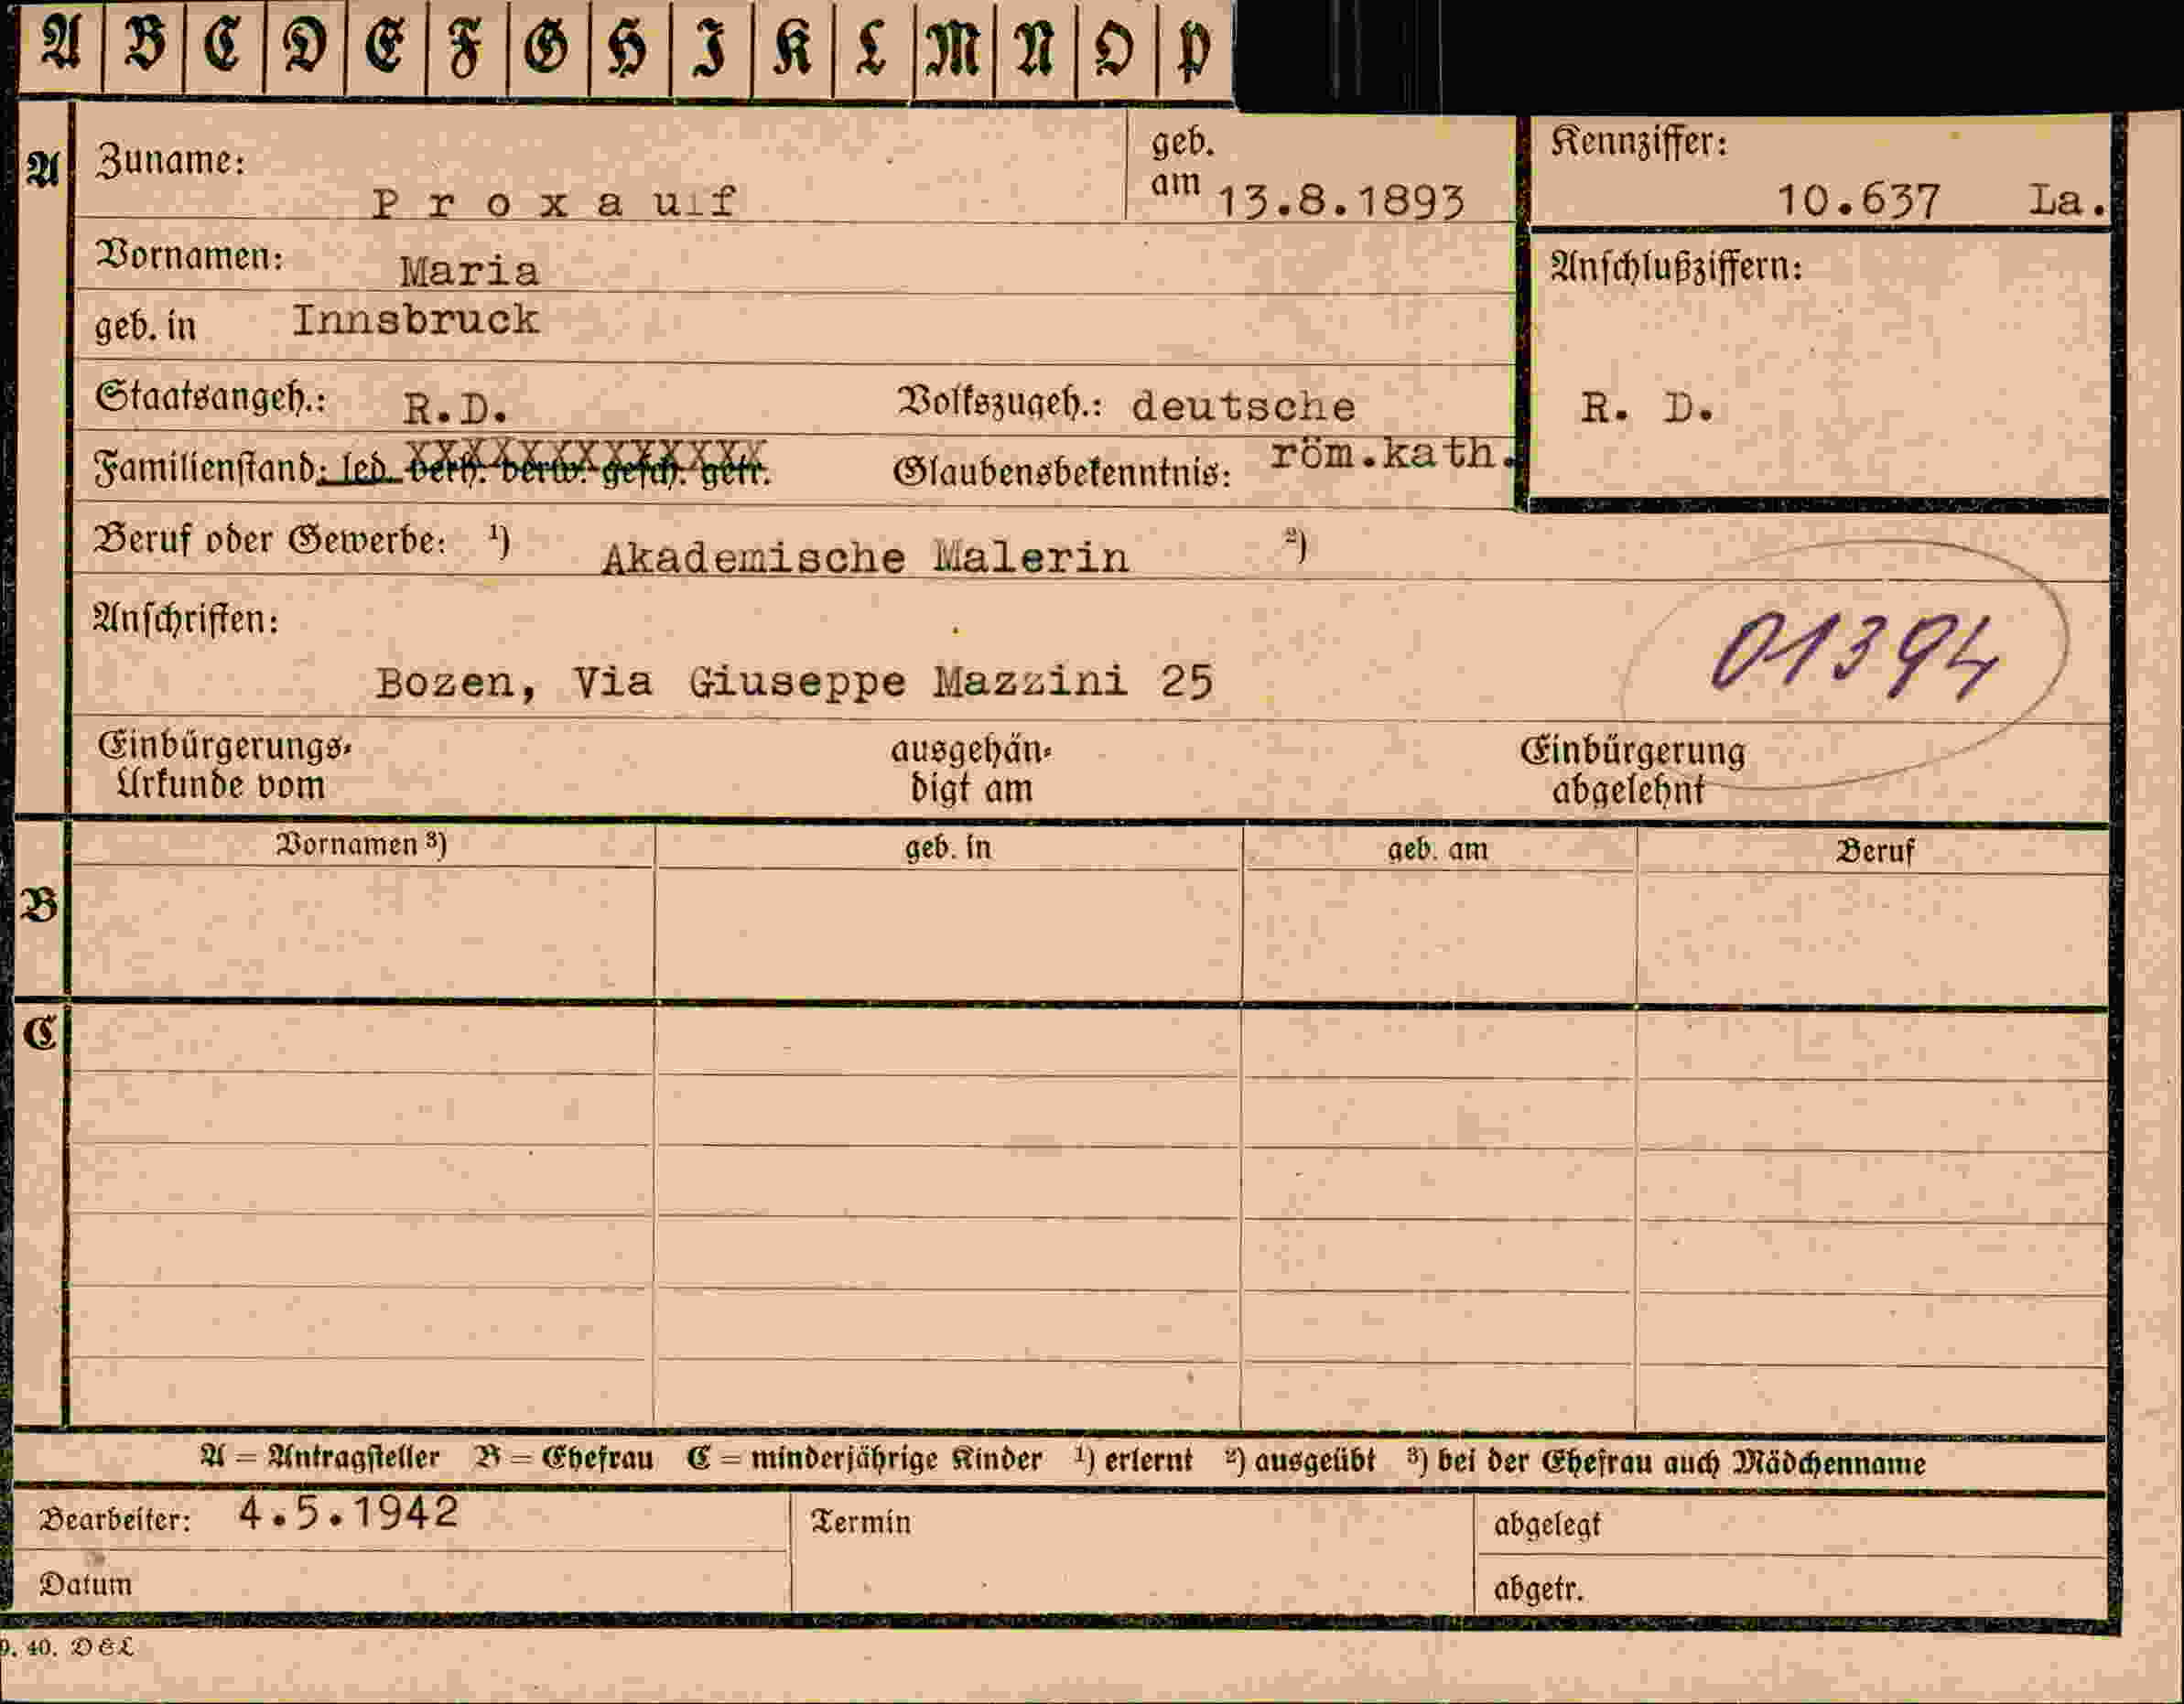 A B C D E F G H I K L M N O P
A Zuname: Proxauf geb. am 13.8.1893 Kennziffer: 10.637 La.
Vornamen: Maria Anschlußziffern:
geb. in Innsbruck
Staatsangeh.: R.D. Volkszugeh.: deutsche R. D.
Familienstand: led. verh. verw. gesch. getr. Glaubensbekenntnis: röm.kath.
Beruf oder Gewerbe: ¹) Akademische Malerin ²)
Anschriften:
01394
Bozen, Via Giuseppe Mazzini 25
Einbürgerungs- ausgehän- Einbürgerung
Urkunde vom digt am abgelehnt
Vornamen ³) geb. in geb. am Beruf
B
C
A = Antragsteller B = Ehefrau C = minderjährige Kinder ¹) erlernt ²) ausgeübt ³) bei der Ehefrau auch Mädchenname
Bearbeiter: 4.5.1942 Termin abgelegt
Datum abgetr.
40. DEL